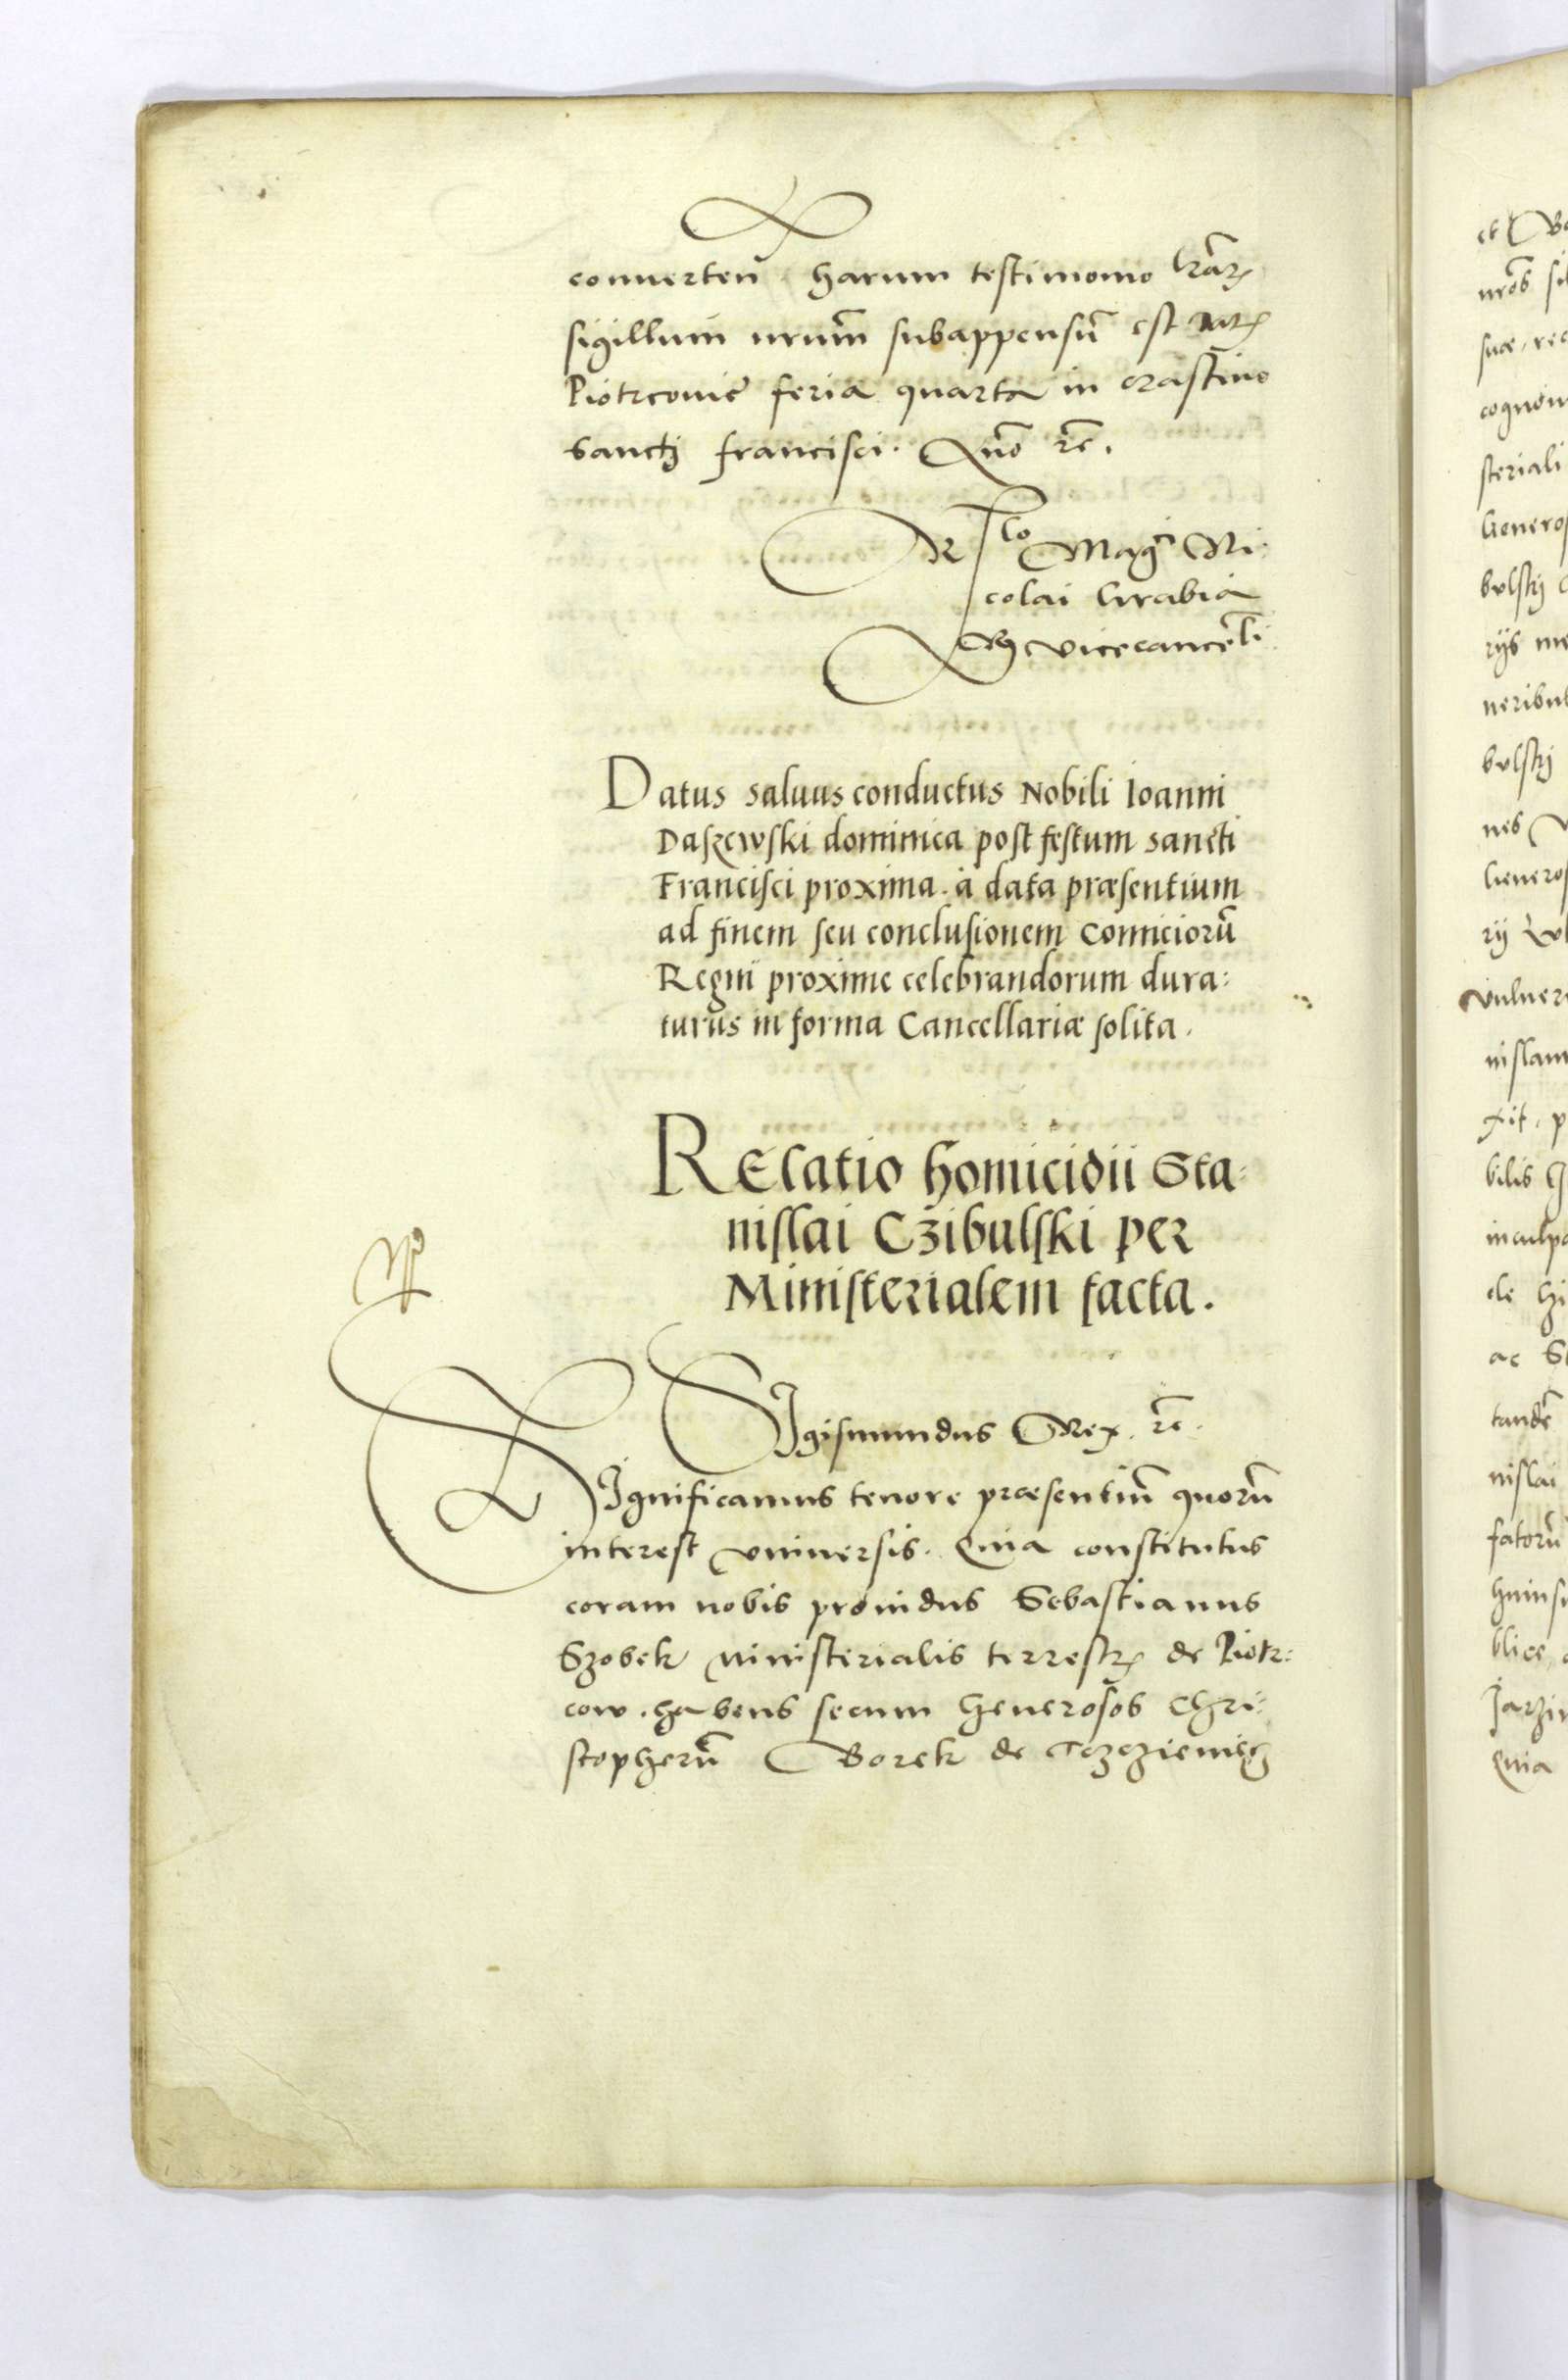 conuerten harum testimonio lrãrꝫ
sigillum nrum̃ subappensũ est
Piotrcouie feria quarta in crastino
Sancti Francisci. Anno rc̃.
Rlo Magci Ni:
colai Grabia
Rꝫ Vicecancelli
Datus saluus conductus Nobili Ioanni
Daszewski dominica post festum sancti
Francisci proxima. à data præsentium
ad finem seu conclusionem Comiciorũ
Regni proxime celebrandorum dura:
turus in forma Cancellariæ solita.
Relatio homicidii Sta:
nislai Czibulski per
Ministerialem facta.
Sigismundus Rex. rc̃.
Significamus tenore præsentiũ quorũ
interest vniuersis. Quia constitutus
coram nobis prouidus Sebastianus
Szobek ministerialis terrestrꝫ de Piotr:
cow. habens secum Generosos Chri:
stopherũ Borek de
et
nrõs
suæ, rec
cognom
steriali
Generos
bulskj
rijs me
neribus
bulskj
nes
Generos
rij
vulner
nislam
xit, p
bilis
inculpa
de
ac
tandẽ
nislai
fatorũ
huius
blice
Jarzi
Quia